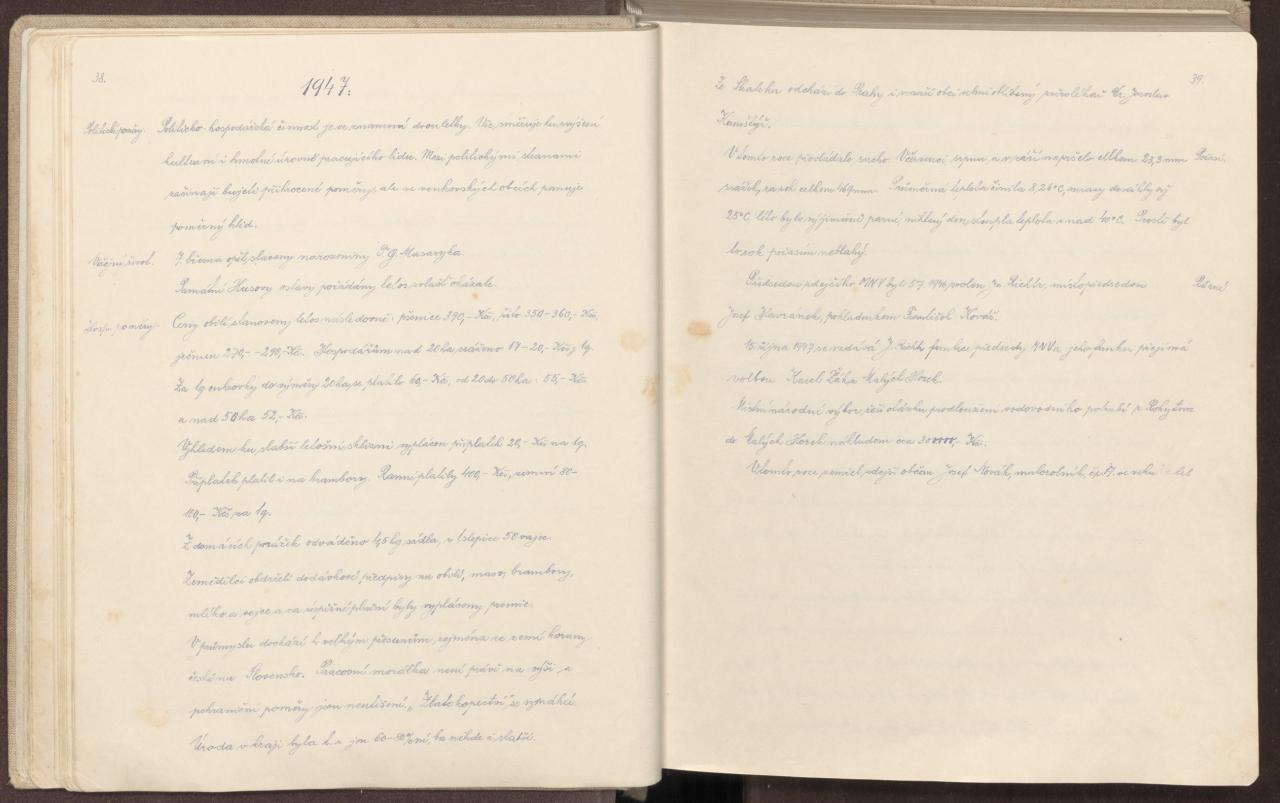 38.
1947.
Politické poměry. Politicko-hospodářská činnost je ve znamení dvouletky. Vše směřuje ku zvýšení
kulturní i hmotné úrovně pracujícího lidu. Mezi politickými stranami
začínají býti přiostřené poměry, ale ve venkovských obcích panuje
poměrný klid.
Veřejný život. 7. března opět slaveny narozeniny T. G. Masaryka.
Památní Husovy oslavy pořádány letos zvlášť okázale.
Hosp. poměry. Ceny obilí stanoveny letos následovně: pšenice 390,- Kčs, žito 350-360,- Kčs,
ječmen 270,- -290,- Kčs. Hospodářům nad 20 ha sraženo 17-20,- Kčs, 1q.
Za 1q cukrovky do výměry 20 ha se platilo 60,- Kčs, od 20 do 50 ha: 55,- Kčs
a nad 50 ha 52,- Kčs.
Vzhledem ku slabší letošní sklizni vyplácen příplatek 20,- Kčs na 1q.
Příplatek platil i na brambory. Ranní platily 400,- Kčs, zimní 80-
110,- Kčs za 1q.
Z domácích porážek odváděno 1,5 kg sádla, z 1 slepice 50 vajec.
Zemědělci obdrželi dodávkové předpisy na obilí, maso, brambory,
mléko a vejce a za úspěšné plnění byly vypláceny premie.
V průmyslu dochází k velkým přesunům, zejména ze země koruny
české na Slovensko. Pracovní morálka není právě na výši a
pohraniční poměry jsou neutěšené. „Zlatokopectví" se vymáhá.
Úroda v kraji byla t. r. jen 60-80%ní, ba někde i slabší.
39.
Ze Skalska odchází do Prahy i v naší obci velmi oblíbený zvěrolékař Dr. Jaroslav
V tomto roce převládalo sucho. V červenci, srpnu, a v září napršelo celkem 23,3 mm Počasí.
srážek, za rok celkem 469 mm. Průměrná teplota činila 8,26°C, mrazy dosáhly až
25°C, léto bylo výjimečně parné, některý den stoupla teplota i nad 40°C. Prostě byl
to rok počasím neblahý.
Předsedou zdejšího MNV byl 5.7. 1946 zvolen Jos. Richtr, místopředsedou Různé
Josef Havránek, pokladníkem František Kováš.
15. října 1947 se vzdává J. Richtr funkce předsedy MNV a jeho funkci přejímá
volbou Karel Žák z Malých Horek.
Místní národní výbor řeší otázku prodloužení vodovodního potrubí z Rokytova
do Malých Horek nákladem cca 30.000,- Kčs.
V tomto roce zemřel zdejší občan Josef Novák, malorolník, čp. 17. ve věku let